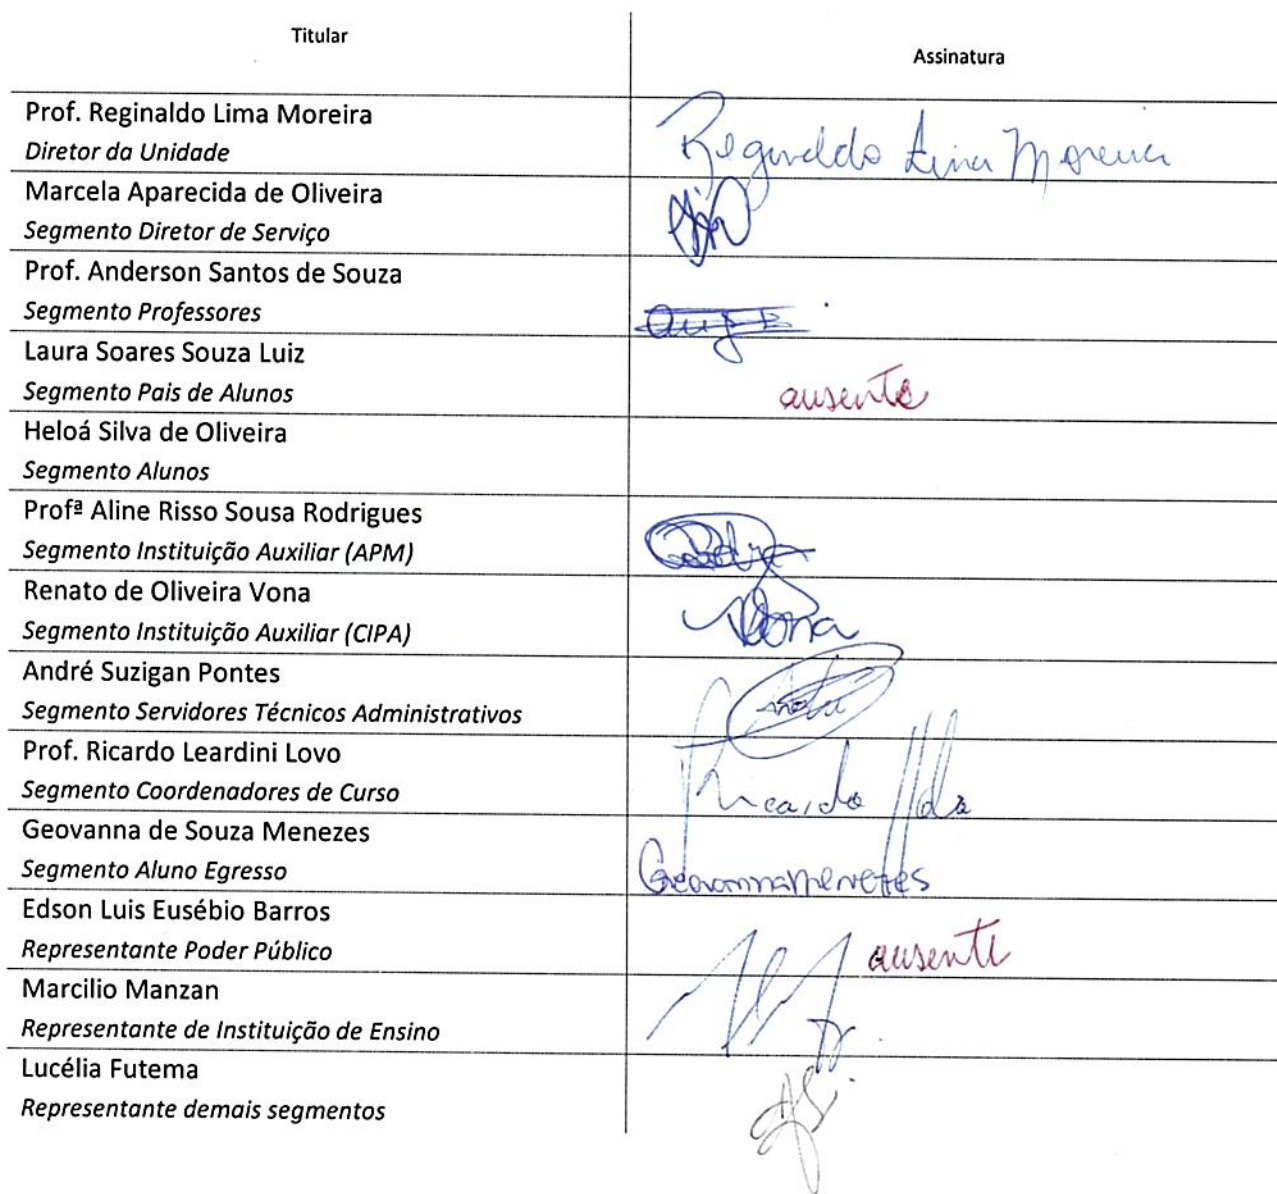 Titular
Assinatura
Prof. Reginaldo Lima Moreira
Diretor da Unidade
Reginaldo Lima Moreira
Marcela Aparecida de Oliveira
Segmento Diretor de Serviço
Prof. Anderson Santos de Souza
Segmento Professores
Laura Soares Souza Luiz
Segmento Pais de Alunos
ausente
Heloá Silva de Oliveira
Segmento Alunos
Profª Aline Risso Sousa Rodrigues
Segmento Instituição Auxiliar (APM)
Renato de Oliveira Vona
Segmento Instituição Auxiliar (CIPA)
Vona
André Suzigan Pontes
Segmento Servidores Técnicos Administrativos
Prof. Ricardo Leardini Lovo
Segmento Coordenadores de Curso
Ricardo
Geovanna de Souza Menezes
Segmento Aluno Egresso
Geovanna Menezes
Edson Luis Eusébio Barros
Representante Poder Público
ausente
Marcilio Manzan
Representante de Instituição de Ensino
Lucélia Futema
Representante demais segmentos